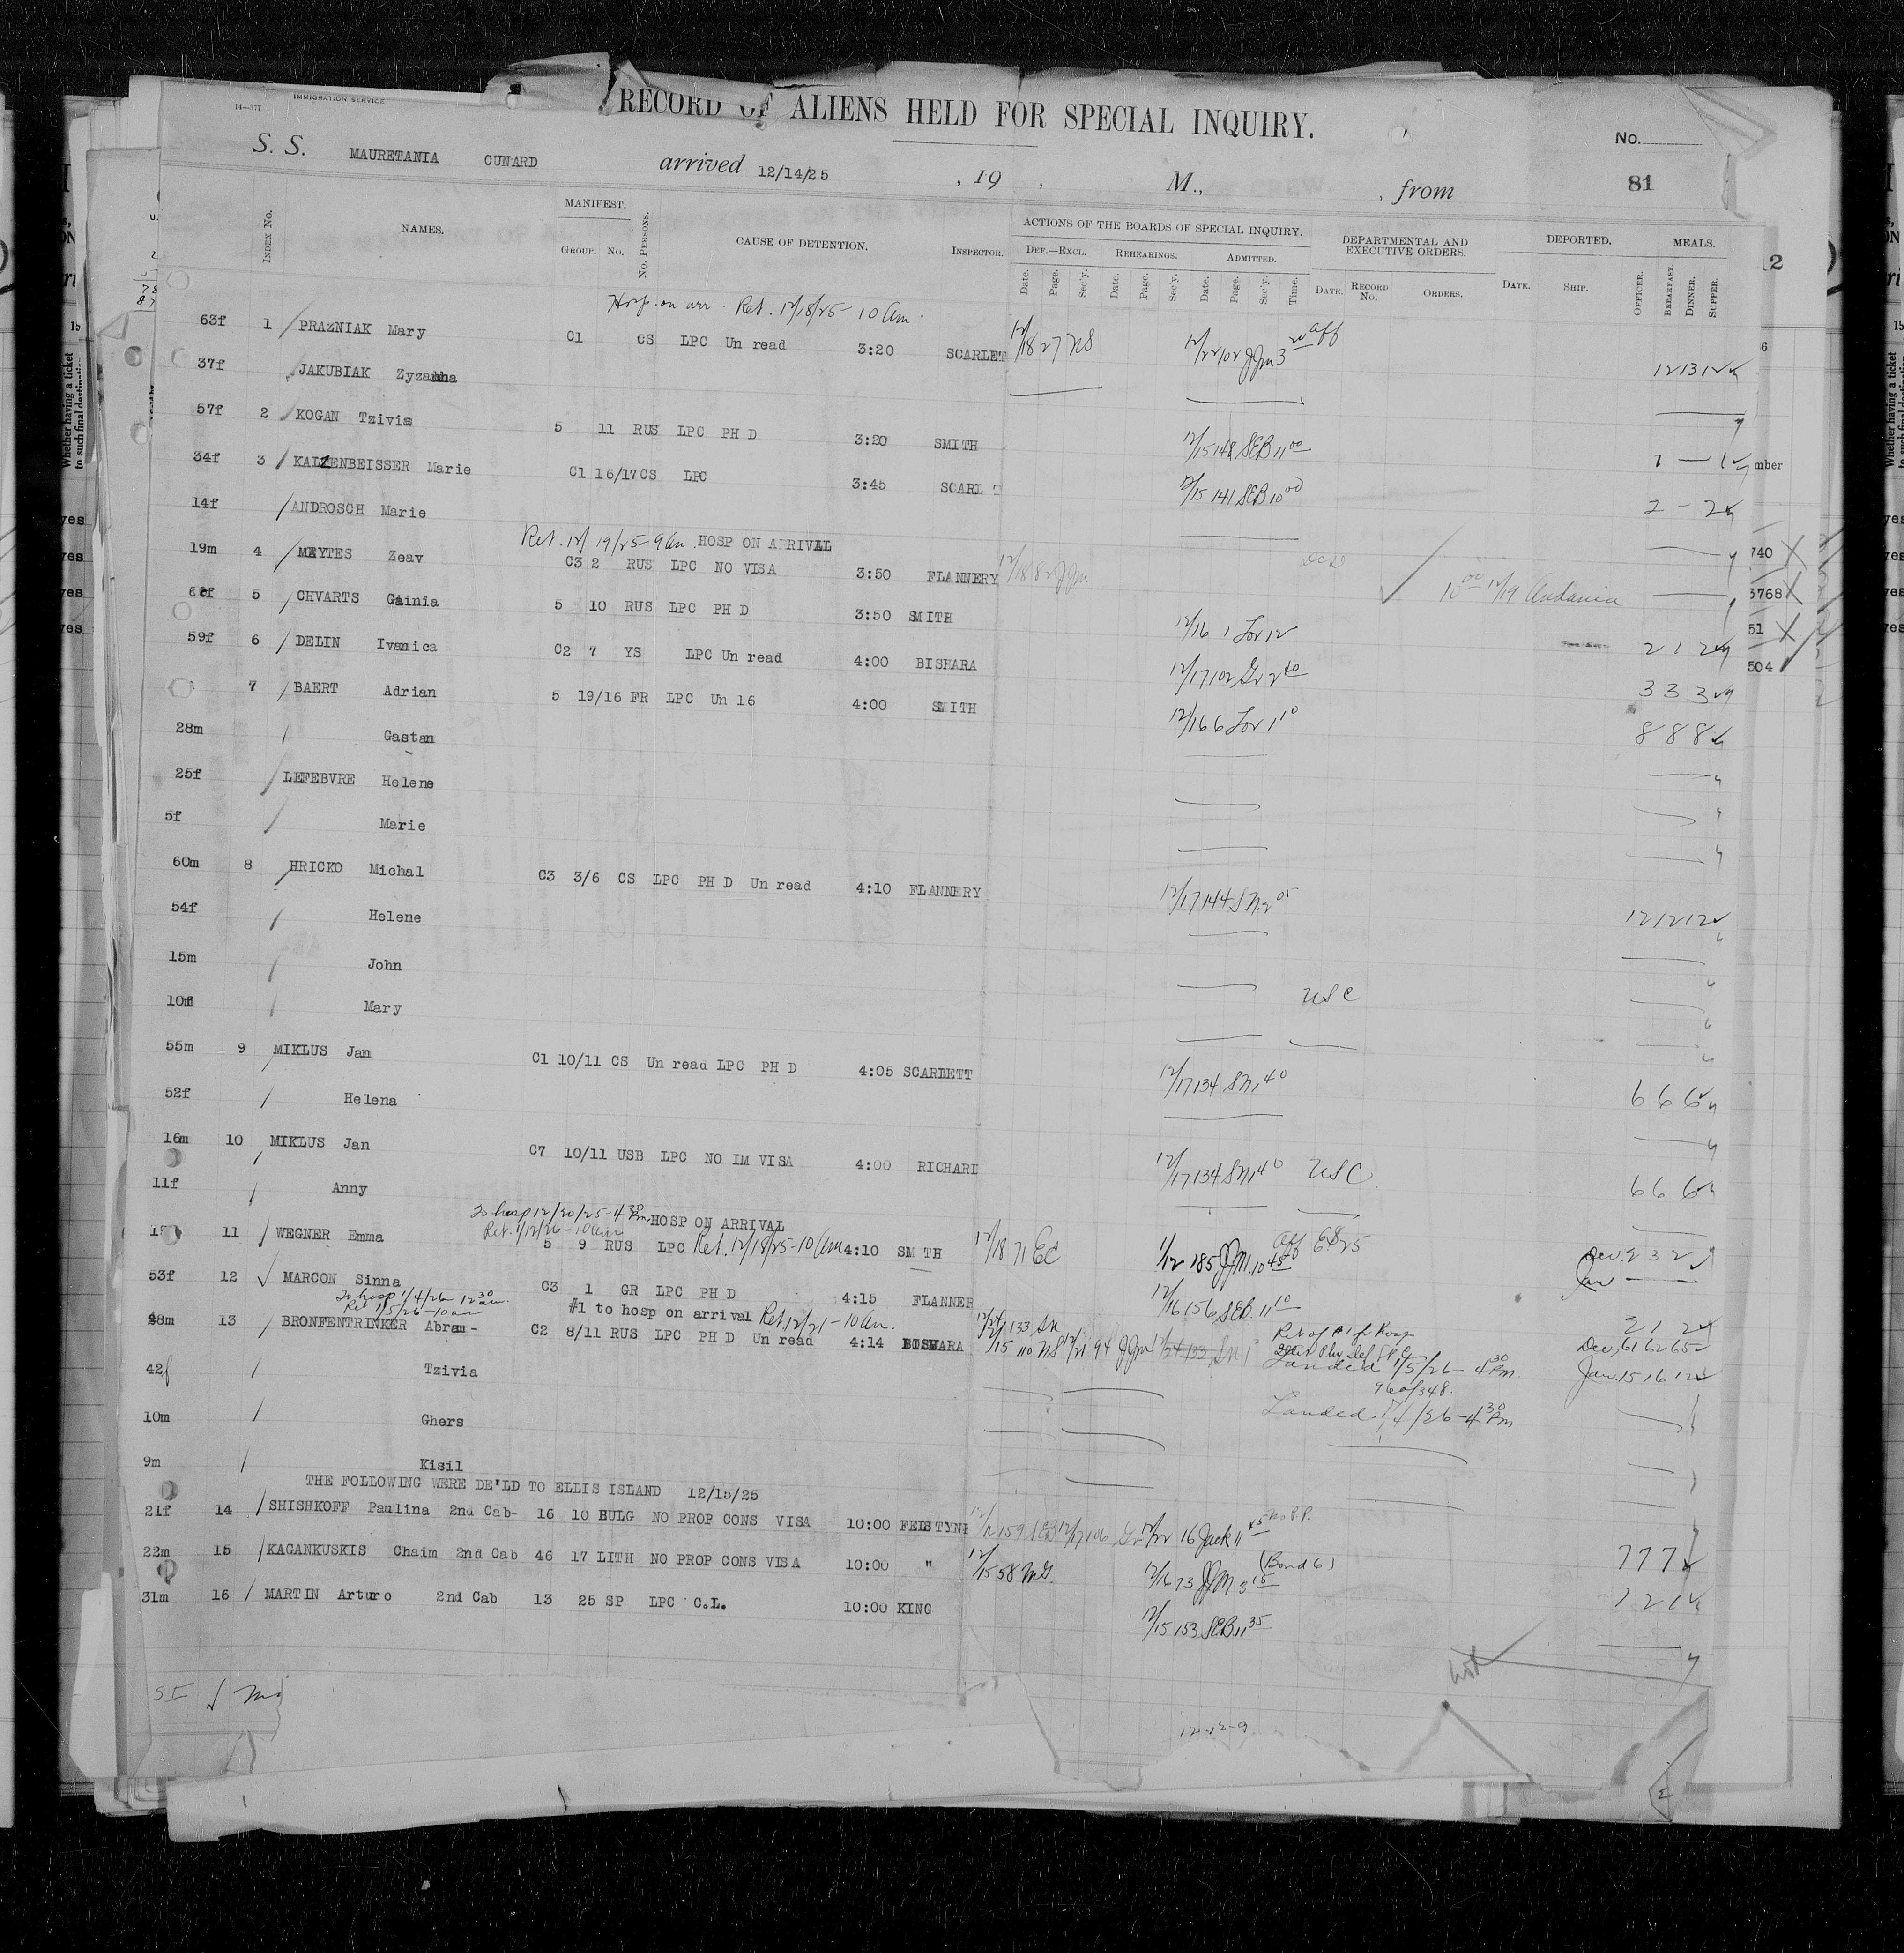 14—377 IMMIGRATION SERVICE
RECORD OF ALIENS HELD FOR SPECIAL INQUIRY.
No.
S. S. MAURETANIA CUNARD arrived 12/14/25 , 19 , M., , from 81
INDEX No. NAMES. MANIFEST. GROUP. No. No. PERSONS. CAUSE OF DETENTION. INSPECTOR. ACTIONS OF THE BOARDS OF SPECIAL INQUIRY. DEPARTMENTAL AND EXECUTIVE ORDERS. DEPORTED. MEALS.
DEF.—EXCL. REHEARINGS. ADMITTED.
Date. Page. Sec'y. Date. Page. Sec'y. Date. Page. Sec'y. Time. DATE. RECORD No. ORDERS. DATE. SHIP. OFFICER. BREAKFAST. DINNER. SUPPER.
Hosp. on arr. Ret. 12/18/25 - 10 am.
63f 1 PRAZNIAK Mary C1 CS LPC Un read 3:20 SCARLET 12/18 27 NS 12/22 102 JJM 3 20 aff 12 13 12
37f JAKUBIAK
57f 2 KOGAN Tzivia 5 11 RUS LPC PH D 3:20 SMITH 12/15 148 SEB 11 00 1 — 1
34f 3 Marie C1 16/17 CS LPC 3:45 SCARL T 12/15 141 SEB 10 00 2 - 2
14f ANDROSCH Marie
Ret. 12/19/25 - 9 am. HOSP ON ARRIVAL
19m 4 MEYTES Zeav C3 2 RUS LPC NO VISA 3:50 FLANNERY 12/18 82 JJM 10 00 12/19 Andania
5 CHVARTS Gainia 5 10 RUS LPC PH D 3:50 SMITH 12/16 1 Lor 12 2 1 2
59f 6 DELIN Ivanica C2 7 YS LPC Un read 4:00 BISHARA 12/17 102 Gr 2 40 3 3 3
7 BAERT Adrian 5 19/16 FR LPC Un 16 4:00 SMITH 12/16 6 Lor 1 10 8 8 8
28m Gastan
25f LEFEBVRE Helene
5f Marie
60m 8 HRICKO Michal C3 3/6 CS LPC PH D Un read 4:10 FLANNERY 12/17 144 SN 2 05 12 12 12
54f Helene
15m John USC
10f Mary
55m 9 MIKLUS Jan C1 10/11 CS Un read LPC PH D 4:05 SCARLETT 12/17 134 SN 1 40 6 6 6
52f Helena
16m 10 MIKLUS Jan C7 10/11 USB LPC NO IM VISA 4:00 RICHARD 12/17 134 SN 1 40 USC 6 6 6
11f Anny
To hosp 12/20/25 - 4 30 Pm. HOSP ON ARRIVAL
Ret. 1/12/26 - 10 am
11 WEGNER Emma 5 9 RUS LPC Ret. 12/18/25 - 10 am 4:10 SM TH 12/18 71 EC 1/12 185 JJM 10 45 aff Dec. 2 3 2
Jan — —
53f 12 MARCON Sinna C3 1 GR LPC PH D 4:15 FLANNER 12/16 156 SEB 11 10 2 1 2
To hosp 1/4/26 12 30 am.
Ret 1/5/26 - 10 am
#1 to hosp on arrival Ret 12/21 - 10 am.
48m 13 BRONFENTRINKER Abram - C2 8/11 RUS LPC PH D Un read 4:14 12/15 110 NS 12/21 94 JJM Dec. 61 62 65
42f Tzivia Landed 1/5/26 - 4 30 Pm. Jan. 15 16 12
10m Ghers Landed 1/4/26 - 4 30 Pm
9m Kisil
THE FOLLOWING WERE DE'LD TO ELLIS ISLAND 12/15/25
21f 14 SHISHKOFF Paulina 2nd Cab- 16 10 BULG NO PROP CONS VISA 10:00 16 Jack 11 45 7 7 7
22m 15 KAGANKUSKIS Chaim 2nd Cab 46 17 LITH NO PROP CONS VISA 10:00 " 12/15 58 MG. 12/16 73 JJM 3 15 (Bond 6) 1 2 1
31m 16 MARTIN Arturo 2nd Cab 13 25 SP LPC C.L. 10:00 KING 12/15 153 SEB 11 35
SI
12-12-9